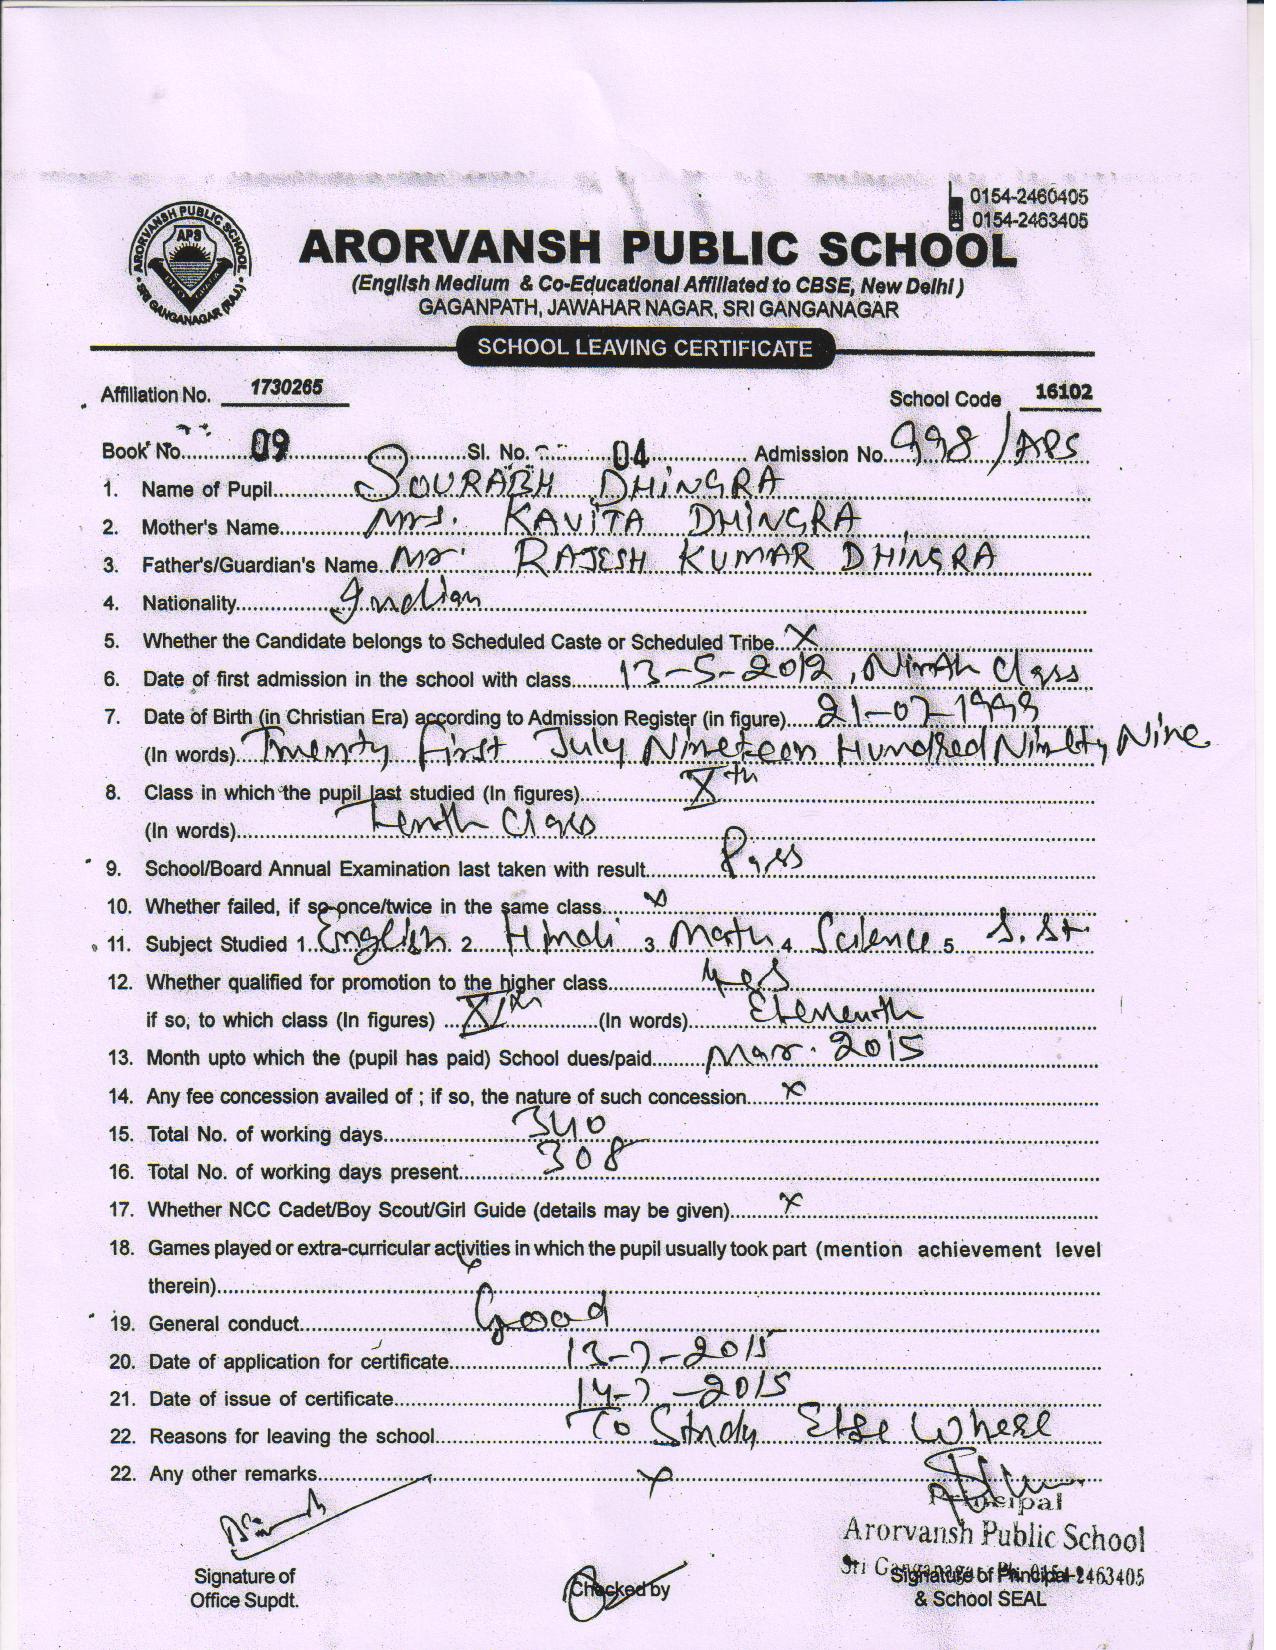 0154-2460405
0154-2463405
ARORVANSH PUBLIC SCHOOL
ARORVANSH PUBLIC SCHOOL
APS
SRI GANGANAGAR (RAJ.)
(English Medium & Co-Educational Affiliated to CBSE, New Delhi)
GAGANPATH, JAWAHAR NAGAR, SRI GANGANAGAR
SCHOOL LEAVING CERTIFICATE
Affiliation No. 1730265 School Code 16102
Book No. 09 Sl. No. 04 Admission No. 998/APS
1. Name of Pupil SOURABH DHINGRA
2. Mother's Name Mrs. KAVITA DHINGRA
3. Father's/Guardian's Name Mr. RAJESH KUMAR DHINGRA
4. Nationality Indian
5. Whether the Candidate belongs to Scheduled Caste or Scheduled Tribe X
6. Date of first admission in the school with class 13-5-2012, Ninth Class
7. Date of Birth (in Christian Era) according to Admission Register (in figure) 21-07-1999
(In words) Twenty First July Nineteen Hundred Ninety Nine
8. Class in which the pupil last studied (In figures) Xth
(In words) Tenth Class
9. School/Board Annual Examination last taken with result Pass
10. Whether failed, if so once/twice in the same class X
11. Subject Studied 1. English 2. Hindi 3. Math 4. Science 5. S.St.
12. Whether qualified for promotion to the higher class Yes
if so, to which class (In figures) XIth (In words) Eleventh
13. Month upto which the (pupil has paid) School dues/paid Mar. 2015
14. Any fee concession availed of ; if so, the nature of such concession X
15. Total No. of working days 340
16. Total No. of working days present 308
17. Whether NCC Cadet/Boy Scout/Girl Guide (details may be given) X
18. Games played or extra-curricular activities in which the pupil usually took part (mention achievement level
therein)
19. General conduct Good
20. Date of application for certificate 13-7-2015
21. Date of issue of certificate 14-7-2015
22. Reasons for leaving the school To Study Else Where
22. Any other remarks X
Principal
Arorvansh Public School
Sri Ganganagar Ph. 0154-2463405
Signature of
Office Supdt.
Checked by
Signature of Principal
& School SEAL